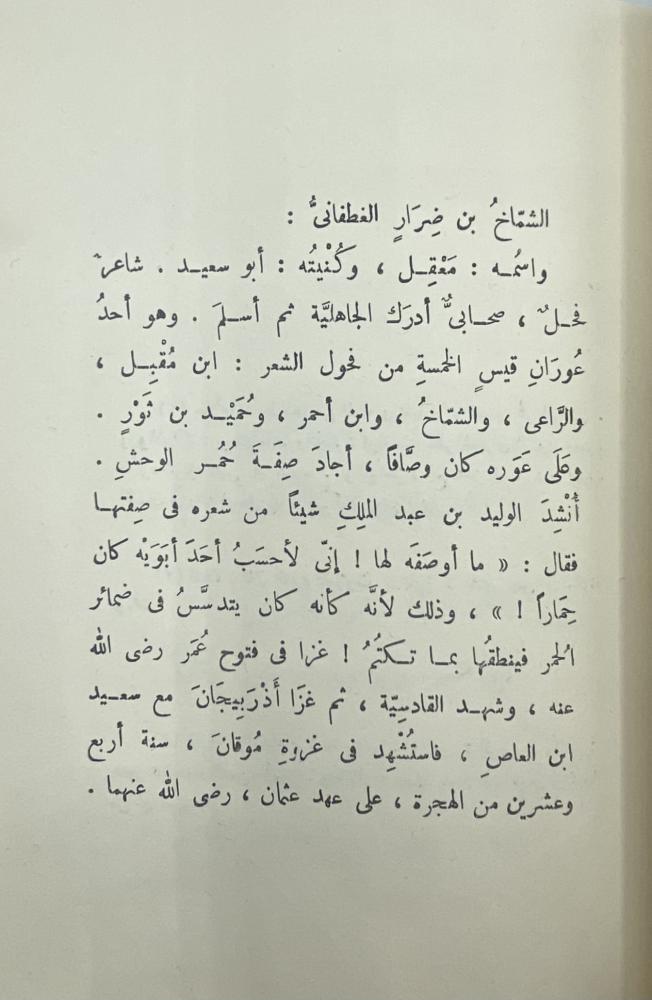 الشمّاخُ بن ضِرَارٍ الغطفانىُّ :
واسمُـه : مَعْقِـل ، وكُنْيتُه : أبو سعيـد . شاعرٌ
فحـلٌ ، صحـابىٌّ أدرَك الجاهليَّة ثم أسـلمَ . وهو أحدُ
عُورَانِ قيسٍ الخمسةِ من فحول الشعر : ابن مُقْبِـل ،
والرَّاعى ، والشمّاخُ ، وابن أحمر ، وحُمَيْـد بن ثَوْرٍ .
وعَلَى عَوَره كان وصَّافاً ، أجادَ صِفَـةَ حُمُـر الوحشِ .
أُنْشِدَ الوليد بن عبد الملِكِ شيئاً من شعره فى صِفتهـا
فقال : « ما أوصَفَه لها ! إنّى لأحسَبُ أحَدَ أبَوَيْه كان
حِمَاراً ! » ، وذلك لأنَّه كأنه كان يتدسَّسُ فى ضمائر
الُحمر فينطقُها بمـا تـكتُمُ ! غزا فى فتوح عُمَر رضى الله
عنه ، وشهـد القادسِيّة ، ثم غزَا أَذْرَبِيجَانَ مع سعـيد
ابن العاصِ ، فاستُشْهِد فى غزوةِ مُوقانَ ، سنة أربع
وعشرين من الهجرة ، على عهد عثمان ، رضى الله عنهما .